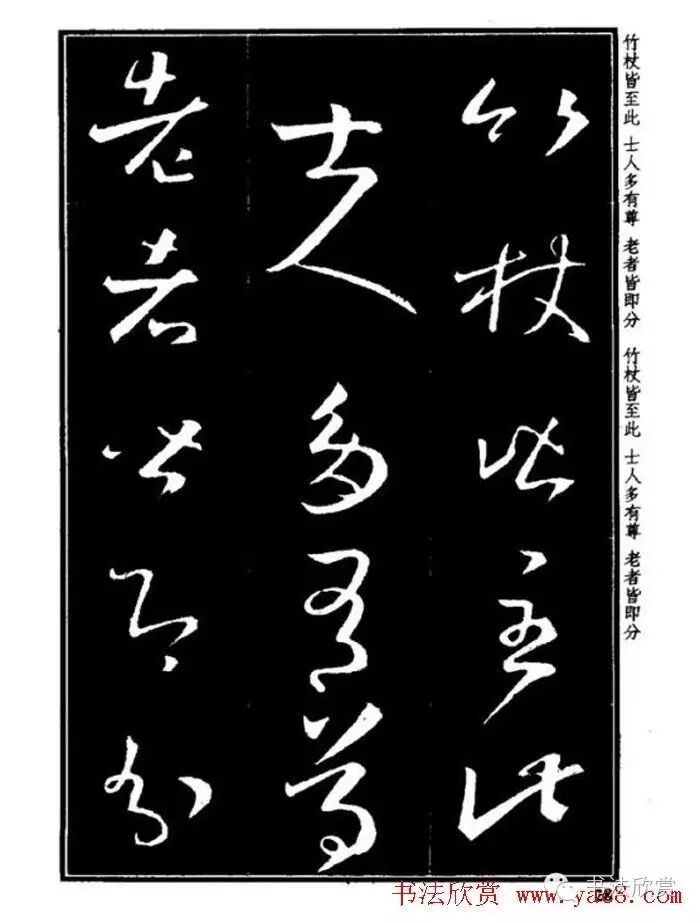 竹杖皆至此
士人多有尊
老者皆即分
竹杖皆至此 士人多有尊 老者皆即分 竹杖皆至此 士人多有尊 老者皆即分
书法欣赏 www.yac8.com
书法欣赏